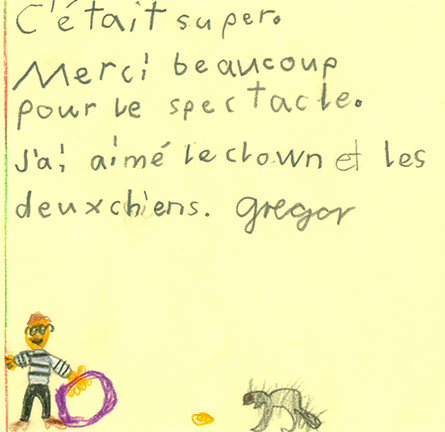 C'était super.
Merci beaucoup
pour le spectacle.
J'ai aimé le clown et les
deux chiens. gregor